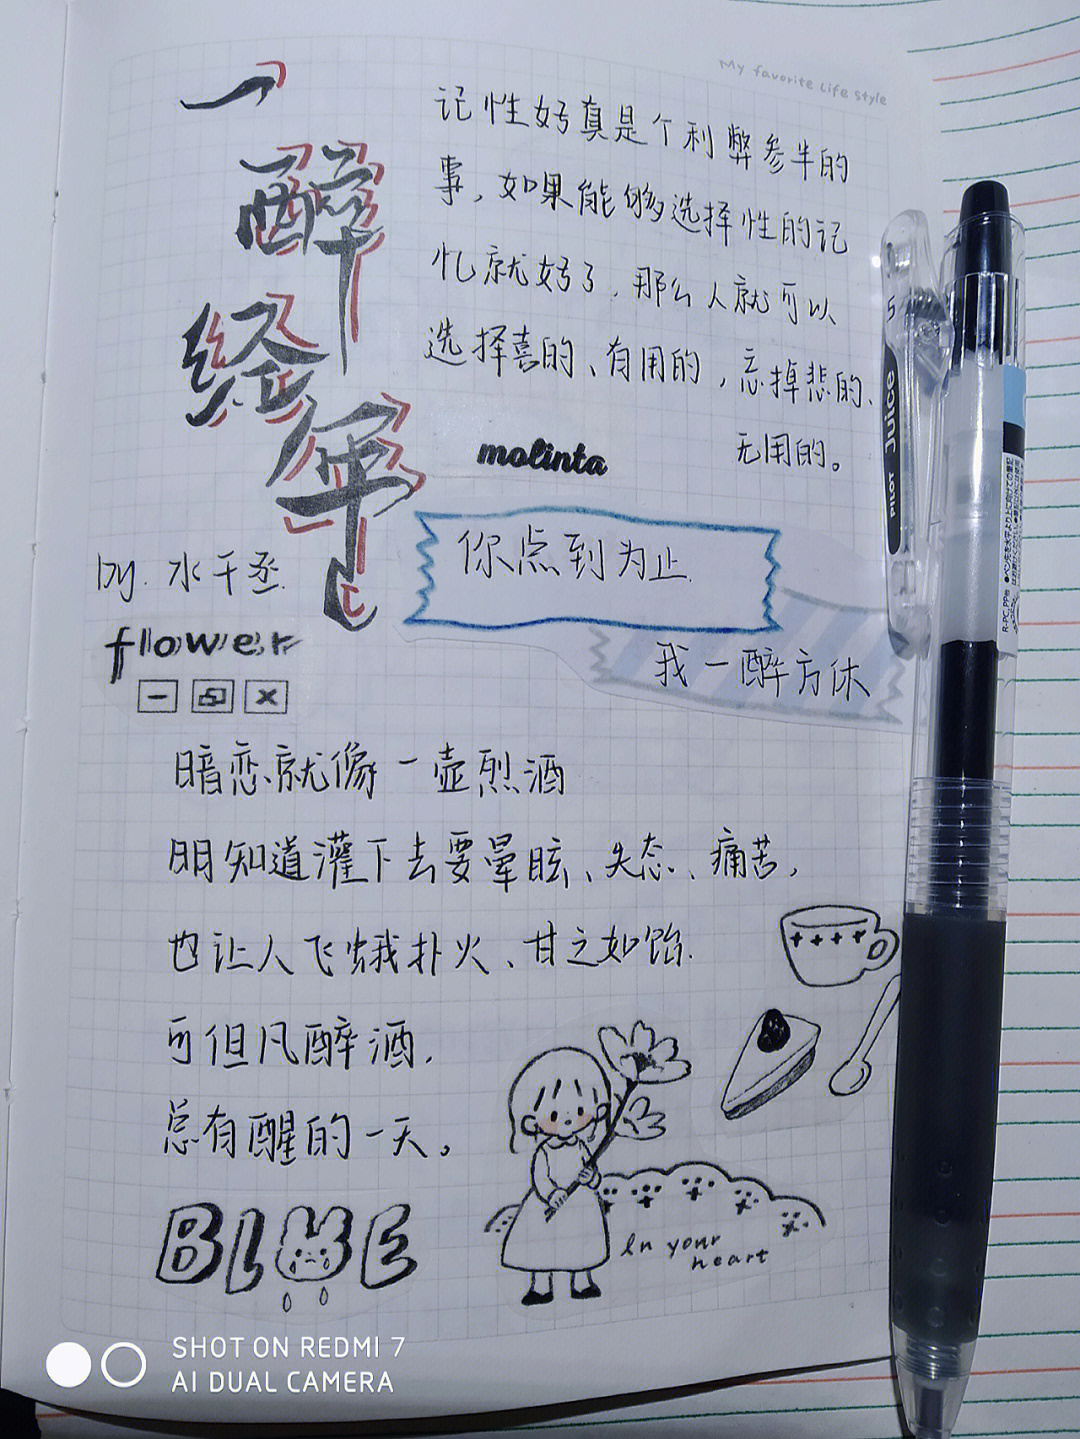 My favorite Life Style
一
醉
经
年
by. 水千丞.
记性好真是个利弊参半的
事，如果能够选择性的记
忆就好了，那么人就可以
选择喜的、有用的，忘掉悲的、
无用的。
molinta
你点到为止.
我一醉方休
flower
暗恋就像一壶烈酒
明知道灌下去要晕眩、失态、痛苦，
也让人飞蛾扑火、甘之如饴.
可但凡醉酒，
总有醒的一天。
BLUE
In your
heart
PILOT Juice
5
SHOT ON REDMI 7
AI DUAL CAMERA